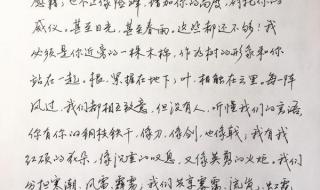 慰籍；也不止像险峰，增加你的高度，衬托你的
威仪。甚至日光，甚至春雨，这些都还不够！我
必须是你近旁的一株木棉，作为树的形象和你
站在一起。根，紧握在地下；叶，相触在云里。每一阵
风过，我们都相互致意，但没有人，听懂我们的言语，
你有你的铜枝铁干，像刀，像剑，也像戟；我有我
红硕的花朵，像沉重的叹息，又像英勇的火炬。我们
分担寒潮、风雷、霹雳；我们共享雾霭、流岚、虹霓。